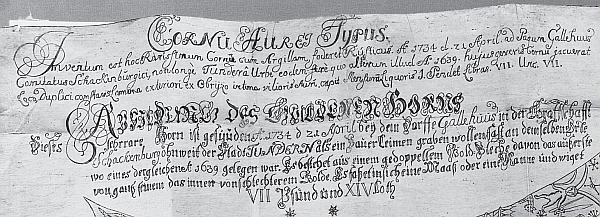 CORNU AUREI TYPUS.
Inventum est hoc Rarissimum Cornu cum Argillam foderet Rusticus. A: 1734 d. 21 April. ad Pagum Gallehuus
Comitatus Schackenburgici, non longe Tundera Urbe eodem loco quo alterum illud A: 1639. hujus generis Cornu jacuerat
Duplici constans Lamina exteriori ex Obryzo intima vilioris Auri, capit Mensuram Liquoris 1 Pendet Libras. VII. Unc. VII.
ABRISZ DES GULDENEN HORNS
Dieses Horn ist gefunden A: 1734 d 21 April bey dem Dorffe Gallehuus in der Graffschafft
Schackenburg ohnweit der Stadt TUNDERN Als ein Bauer Leimen graben wollen hat an demselben Orte
wo eines dergleichen A: 1639 gelegen war. Es bestehet aus einem gedoppeltem Blech davon das äußerste
von ganz feinem das innere von schlechterem Golde. Es hält in sich eine Maaß oder eine Kanne und wiget
VII Pfund und XIV Loth